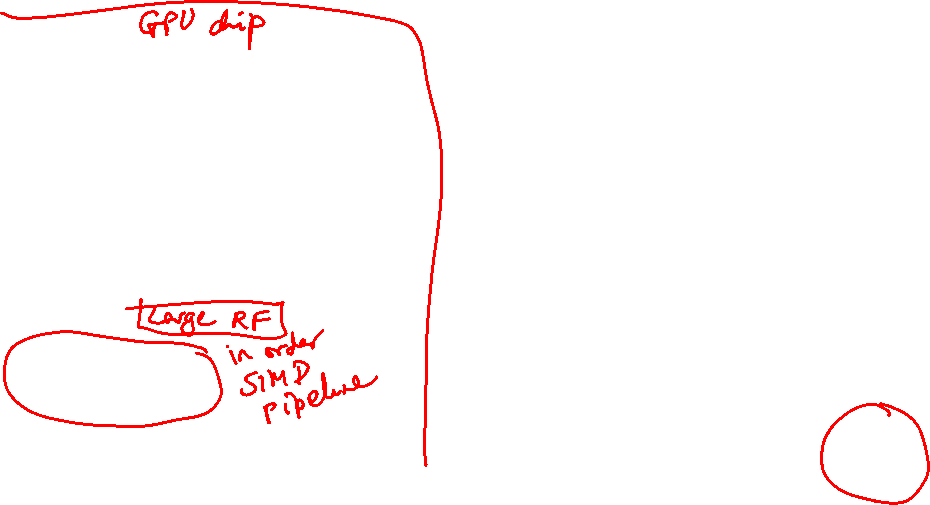 GPU chip
Large RF
in order
SIMD
pipeline